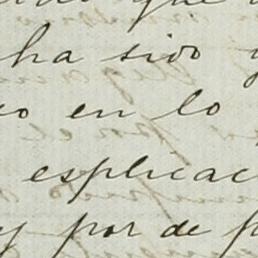 que
ha sido
en lo
explicac
y por de